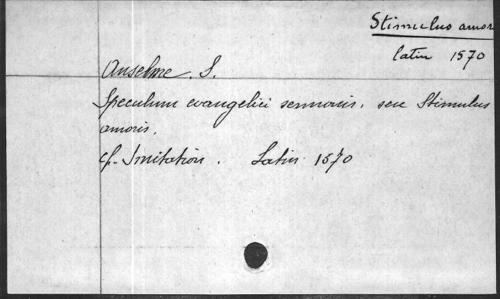 Stimulus amor
latin 1570
Anselme. S.
Speculum evangelici sermonis, seu Stimulus
amoris.
cf. Imitation. Latin 1570